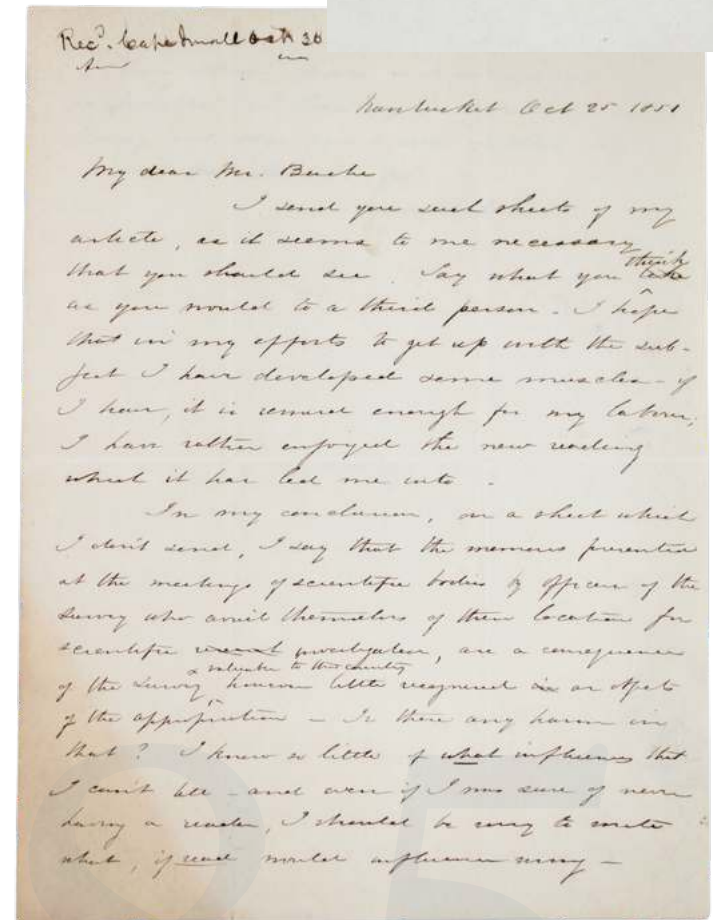 Recd. Cape Small Oct 30
Nantucket Oct 25 1851
My dear Mr. Bache
I send you such sheets of my
article, as it seems to me necessary
that you should see. Say what you think
as you would to a third person - I hope
that in my efforts to get up with the sub-
ject I have developed some muscles - if
I have, it is reward enough for my labour,
I have rather enjoyed the new reading
which it has led me into.
In my conclusion, on a sheet which
I don't send, I say that the memoirs presented
at the meetings of scientific bodies by officers of the
Survey who avail themselves of their location for
scientific investigation, are a consequence
& valuable to the country
of the Survey, however little recognized as an object
of the appropriation - Is there any harm in
that? I know so little of what influences that
I can't tell - and even if I was sure of never
having a reader, I should be sorry to write
what, if read would influence wrong -